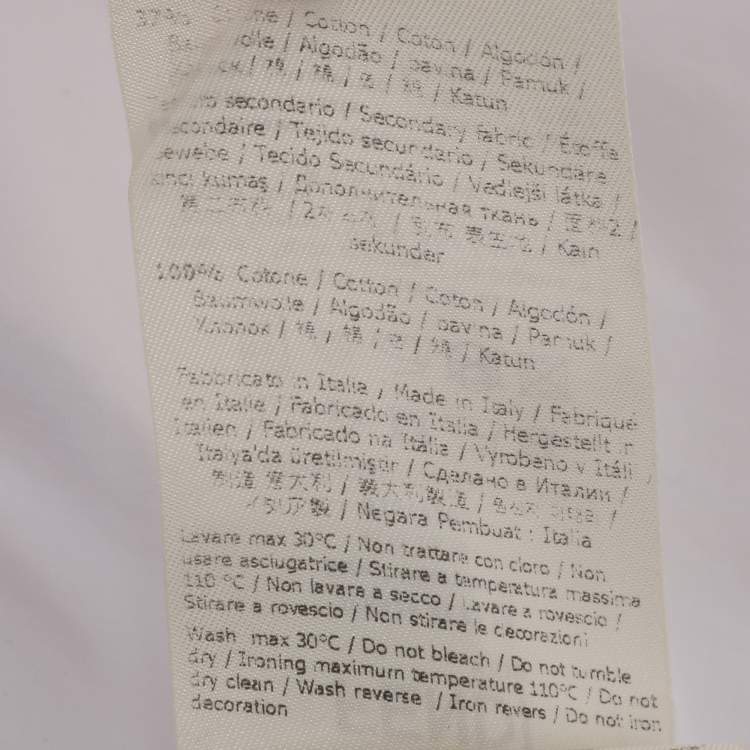 Cotone / Cotton / Coton / Algodón /
/ Algodão / bavlna / Pamuk /
/ 棉 / 棉 / 면 / 綿 / Katun
secondario / Secondary fabric / Étoffe
secondaire / Tejido secundario / Sekundäre
Gewebe / Tecido Secundário / Vedlejší látka /
ikinci kumaş / Дополнительная ткань / 面料2 /
/ Kain
sekunder
100% Cotone / Cotton / Coton / Algodón /
Baumwolle / Algodão / bavlna / Pamuk /
Хлопок / 棉 / 棉 / 면 / 綿 / Katun
Fabbricato in Italia / Made in Italy / Fabriqué
en Italie / Fabricado en Italia / Hergestellt in
Italien / Fabricado na Itália / Vyrobeno v Itálii /
Italya'da üretilmiştir / Сделано в Италии /
制造 意大利 / 義大利製造 / 원산지 이탈리아 /
イタリア製 / Negara Pembuat : Italia
Lavare max 30°C / Non trattare con cloro / Non
usare asciugatrice / Stirare a temperatura massima
110 °C / Non lavare a secco / Lavare a rovescio /
Stirare a rovescio / Non stirare le decorazioni
Wash max 30°C / Do not bleach / Do not tumble
dry / Ironing maximum temperature 110°C / Do not
dry clean / Wash reverse / Iron revers / Do not iron
decoration